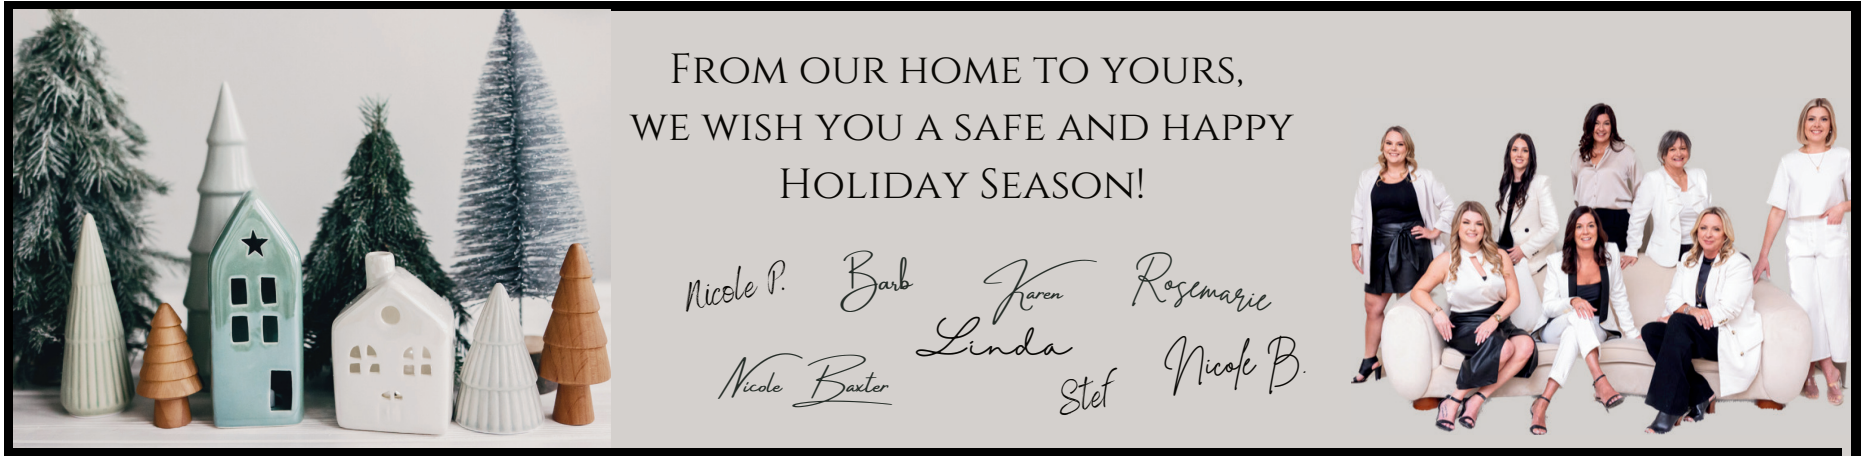 From our home to yours,
we wish you a safe and happy
Holiday Season!
Nicole P. Barb Karen Rosemarie
Linda
Nicole Baxter Stef Nicole B.